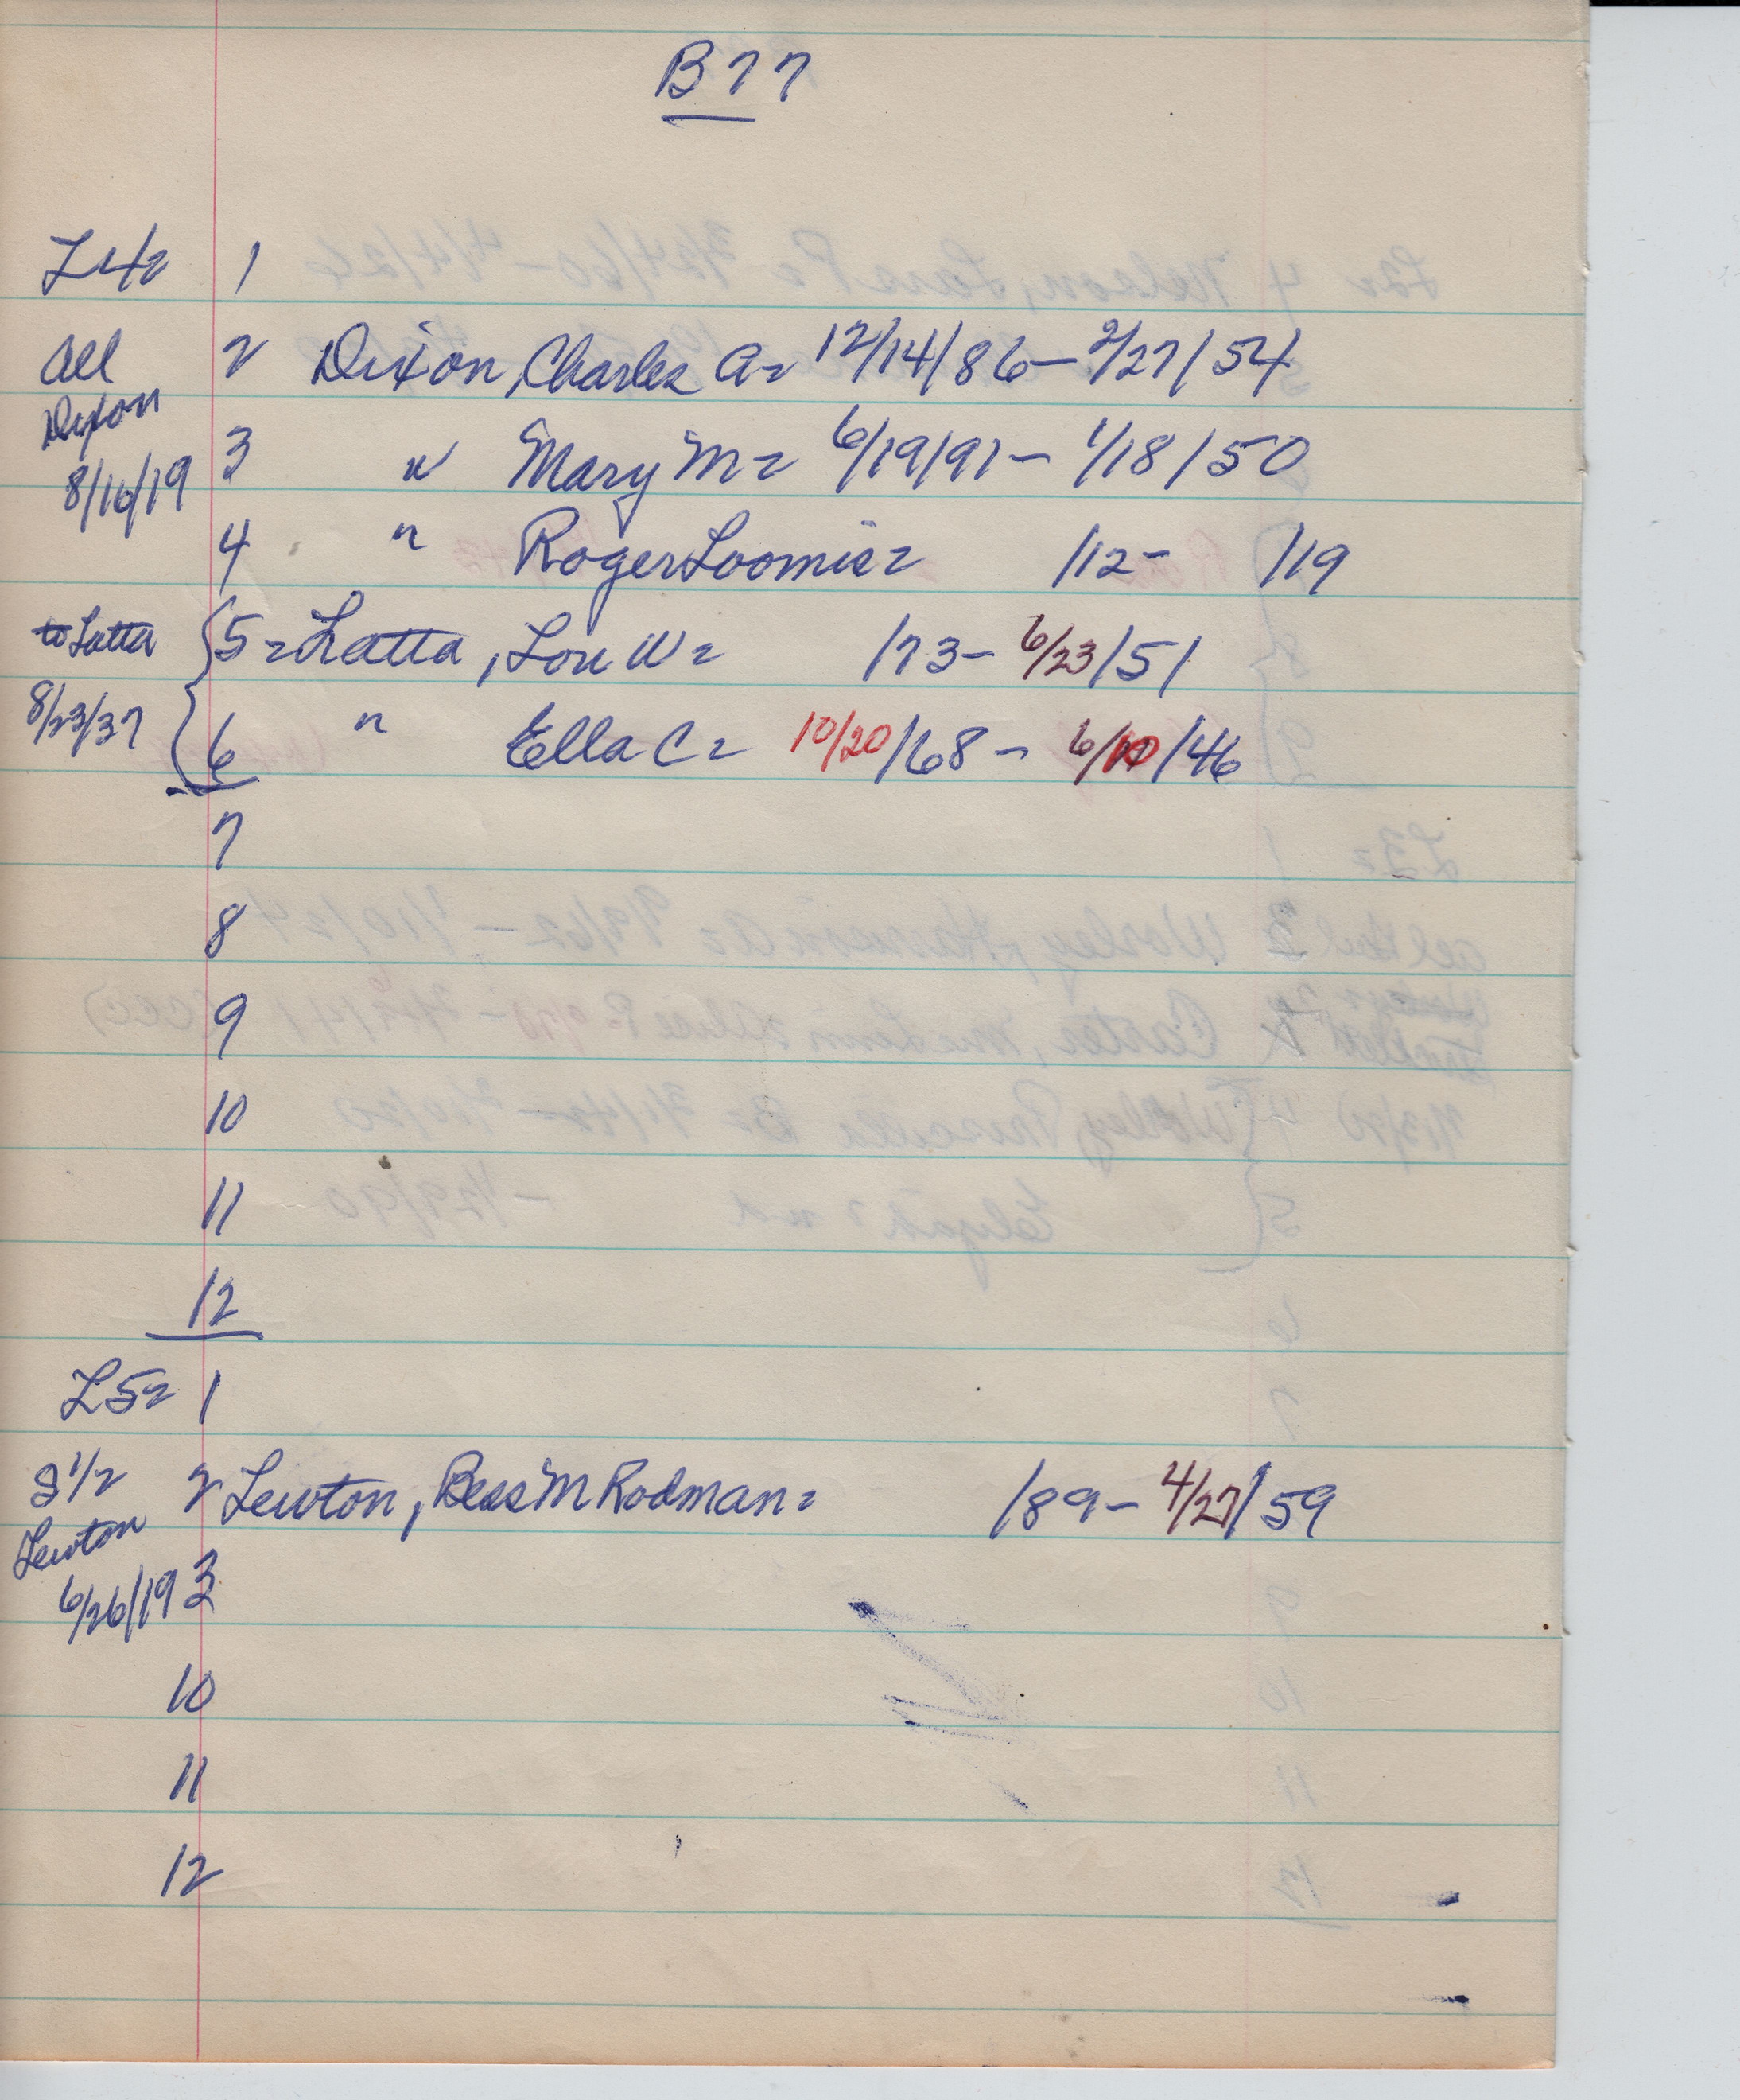 B77
L4= 1
All 2 Dixon, Charles A= 12/14/86 - 2/27/54
Dixon
8/16/19 3 " Mary M= 6/19/91 - 1/18/50
4 " Roger Loomis= /12- /19
to Latta 5= Latta, Lou W= /73- 6/23/51
8/23/37 6 " Ella C= 10/20/68 - 6/10/46
7
8
9
10
11
12
L5= 1
S 1/2 2 Lewton, Bess M Rodman= /89- 4/27/59
Lewton
6/26/19 3
10
11
12